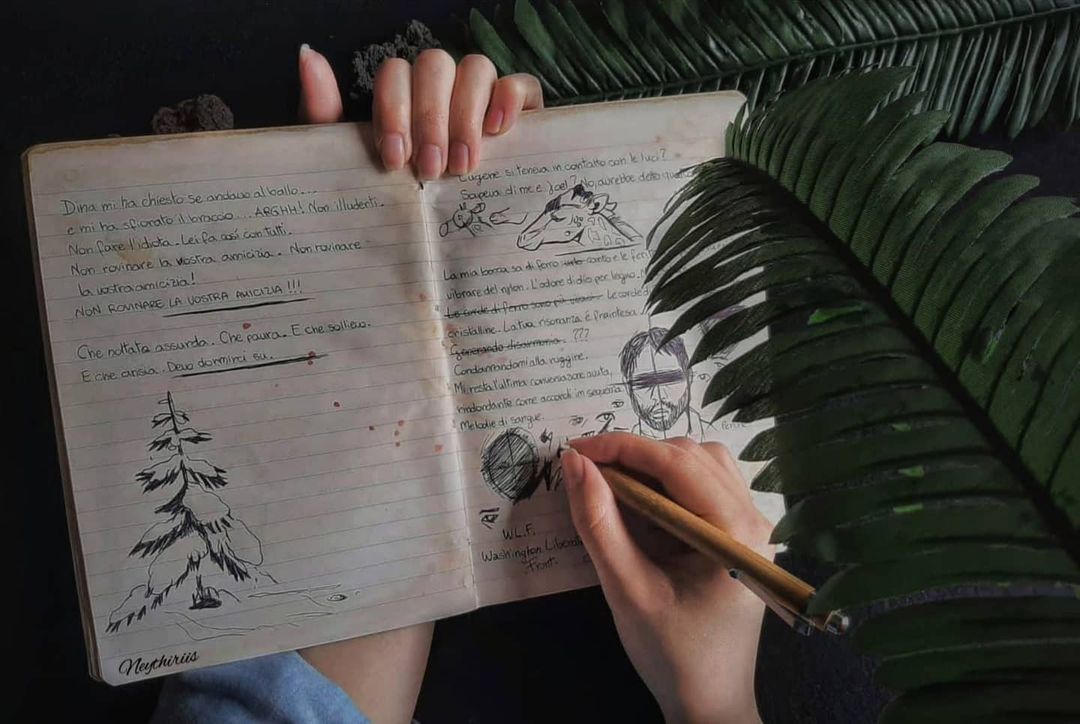 Dina mi ha chiesto se andavo al ballo...
e mi ha sfiorato il braccio... ARGHH! Non illuderti.
Non fare l'idiota. Lei fa così con tutti.
Non rovinare la vostra amicizia. Non rovinare
la vostra amicizia!
NON ROVINARE LA VOSTRA AMICIZIA!!!
Che nottata assurda. Che paura. E che sollievo.
E che ansia. Devo dormirci su.
Neythiriis
Eugene si teneva in contatto con le luci?
Sapeva di me e Joel? No, avrebbe detto
La mia bocca sa di ferro canto e le
vibrare del nylon. L'odore di olio per legno.
Le corde di ferro sono più Le corde
cristalline. La tua risonanza è fraintesa.
Generando disarmonia. ???
Condannandomi alla ruggine.
Mi resta l'ultima conversazione avuta,
ridondante come accordi in sequenza.
Melodie di sangue.
W.L.F.
Washington Liberation
Front.